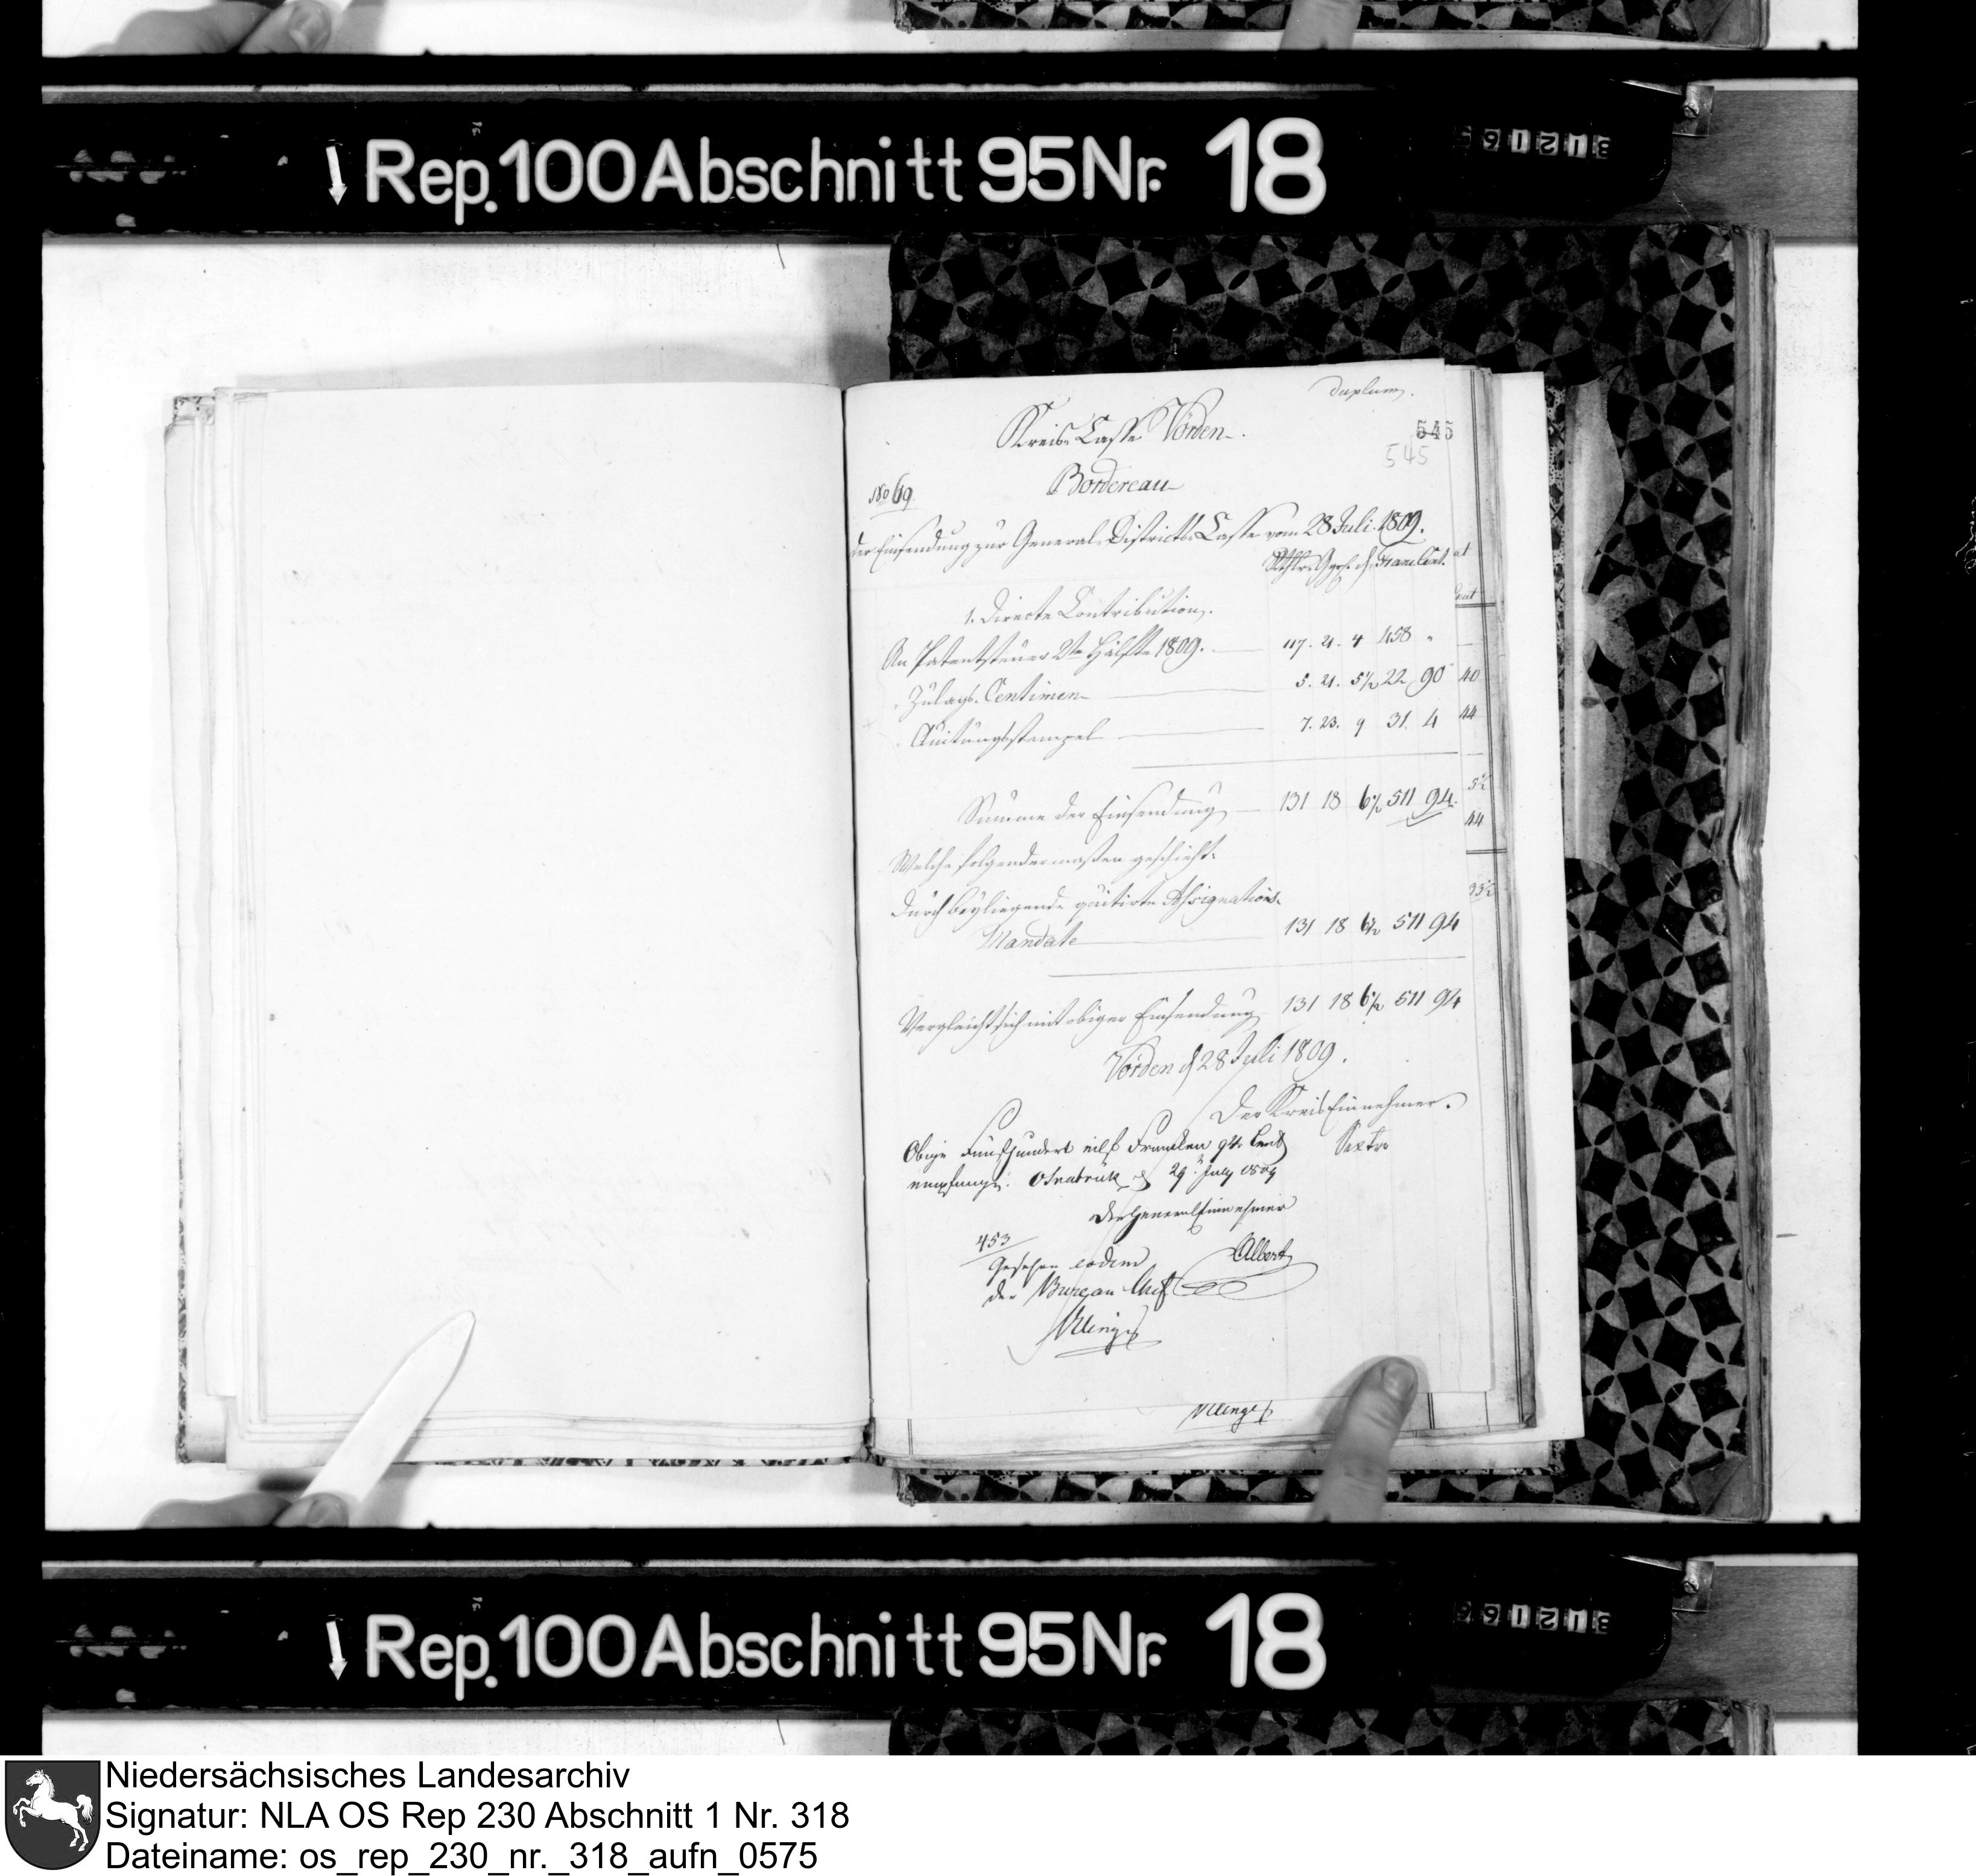 Rep. 100 Abschnitt 95 Nr. 18
duplum.
Kreis-Casse Vörden.
545
545
No 69
Bordereau
der Einsendung zur General-Districts-Casse vom 28 Juli 1809.
Rthlr. Ggr. d. Franc. Cent.
1. Directe Contribution.
An Patentsteuer 2te Hälfte 1809. 117. 21. 4 458 "
" Zulags-Centimen 5. 21. 5½ 22 90
" Quitungsstempel 7. 23. 9 31. 4
40
44
Summe der Einsendung 131 18 6½ 511 94.
44
Welche folgendermaßen geschieht:
Durch beyliegende quitirte Assignations-
Mandate 131 18 6½ 511 94
Vergleicht sich mit obiger Einsendung 131 18 6½ 511 94
Vörden d 28 Juli 1809.
Der Kreis Einnehmer.
Sextro
Obige Fünfhundert eilf Franken 94 Cent
empfangen. Osnabrük d 29 July 1809
Der General Einnehmer
Albert
453
Gesehen eodem
der Bureau Chef
Rep. 100 Abschnitt 95 Nr. 18
Niedersächsisches Landesarchiv
Signatur: NLA OS Rep 230 Abschnitt 1 Nr. 318
Dateiname: os_rep_230_nr._318_aufn_0575